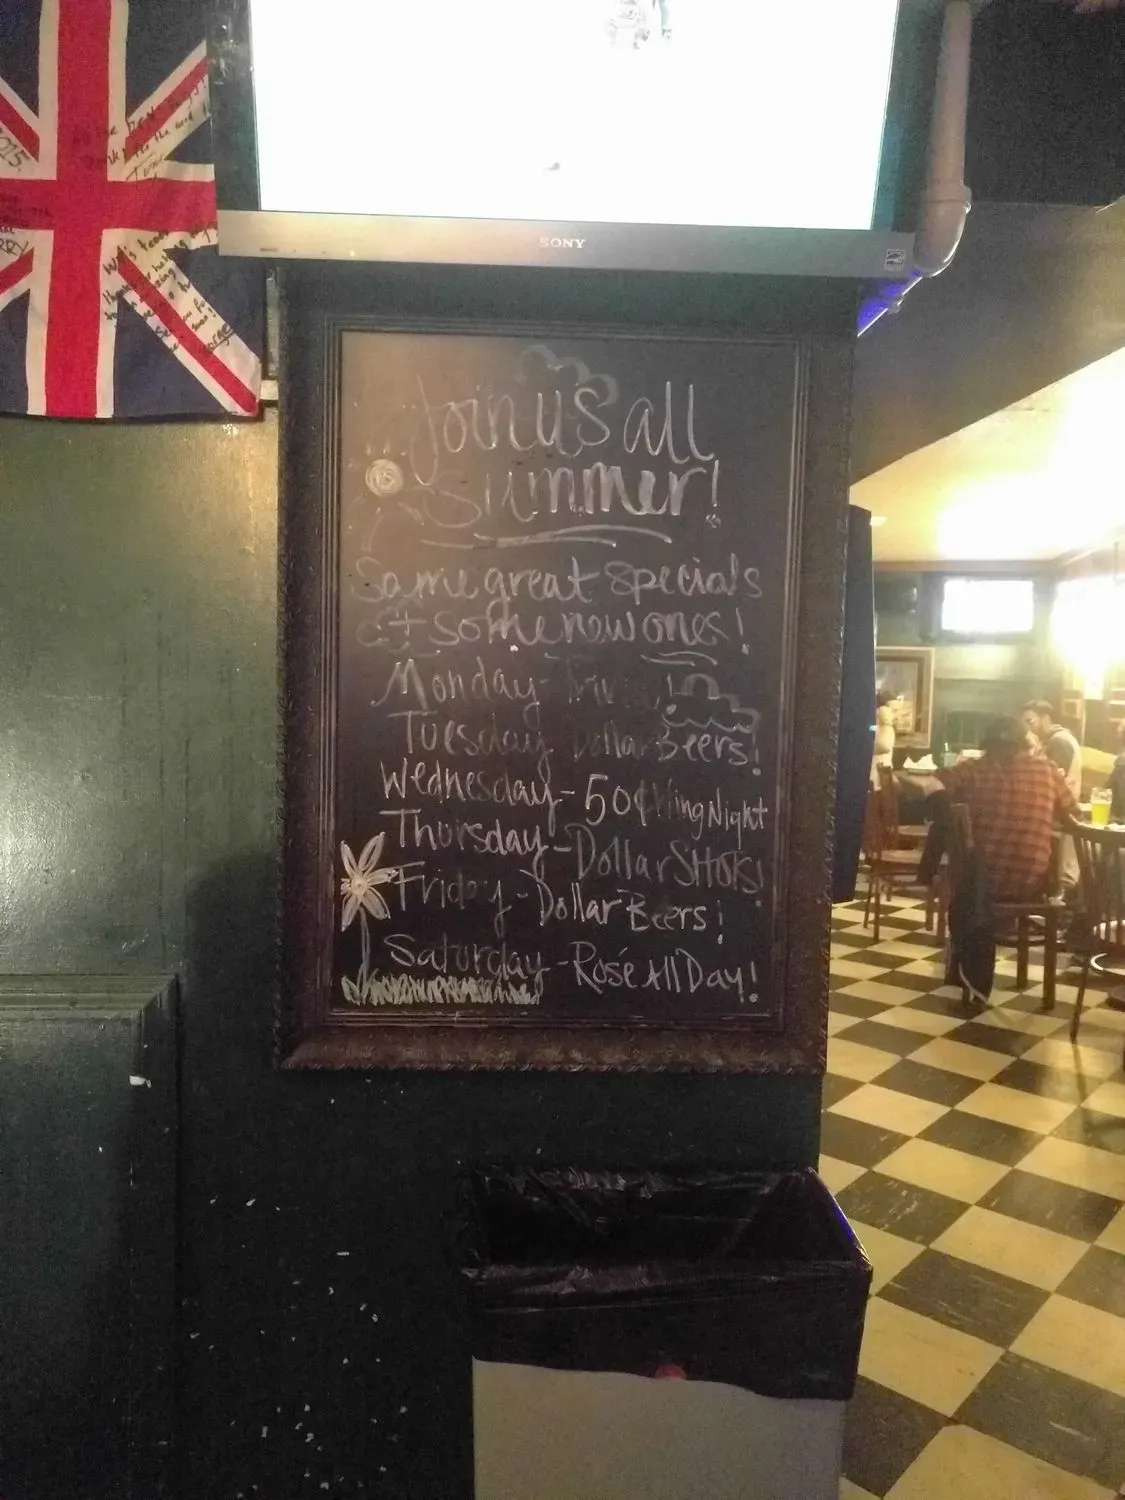 2015.
SONY
Join us all
Summer!
Same great specials
& some new ones!
Monday -
Tuesday Dollar Beers!
Wednesday - 50¢ Wing Night
Thursday - Dollar SHOTS!
Friday - Dollar Beers!
Saturday - Rosé All Day!